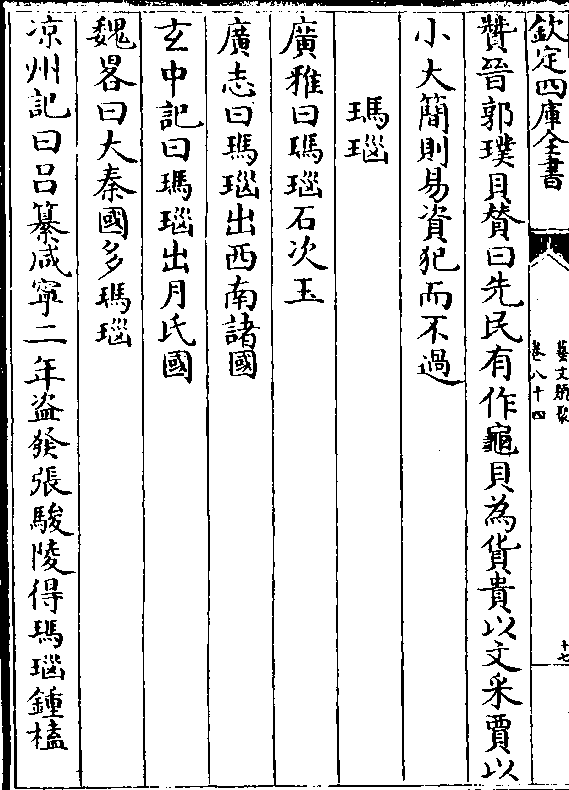 欽定四庫全書
藝文類聚
卷八十四
十七
贊晉郭璞貝賛曰先民有作龜貝為貨貴以文采賈以
小大簡則易資犯而不過
瑪瑙
廣雅曰瑪瑙石次玉
廣志曰瑪瑙出西南諸國
玄中記曰瑪瑙出月氏國
魏畧曰大秦國多瑪瑙
凉州記曰吕纂咸寧二年盗發張駿陵得瑪瑙鍾榼